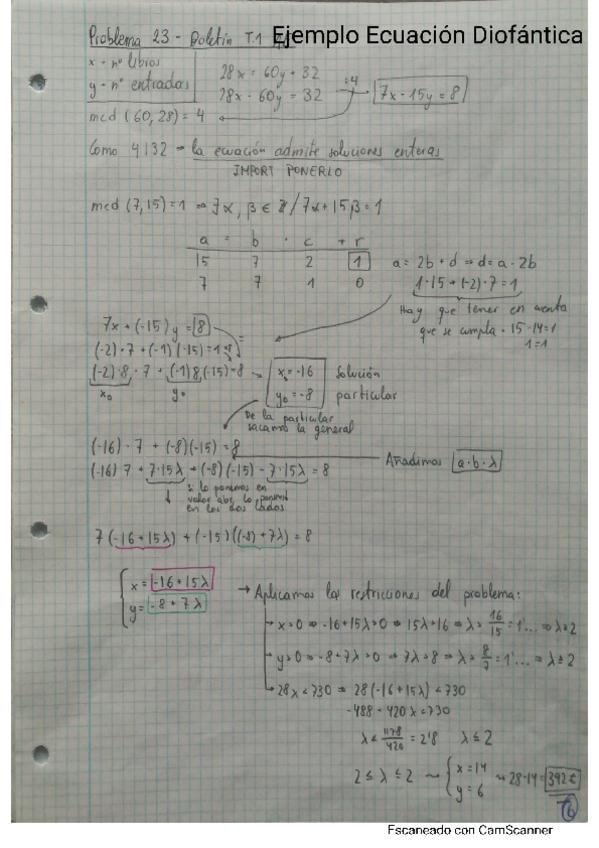 Problema 23 - Boletín T.1
Ejemplo Ecuación Diofántica
x = nº libros
y = nº entradas
28x = 60y + 32
28x - 60y = 32
÷4
7x - 15y = 8
mcd (60, 28) = 4
Como 4|32 → la ecuación admite soluciones enteras
IMPORT PONERLO
mcd (7,15) = 1 ⇒ ∃ α, β ∈ Z / 7α + 15β = 1
a = b · c + r
15 7 2 1
7 7 1 0
a = 2b + d ⇒ d = a - 2b
1·15 + (-2)·7 = 1
Hay que tener en cuenta
que se cumpla · 15 - 14 = 1
1 = 1
7x + (-15)y = 8
(-2)·7 + (-1)(-15) = 1
(-2)·8·7 + (-1)8(-15) = 8
x₀ y₀
x₀ = -16
y₀ = -8
solución
particular
De la particular
sacamos la general
(-16)·7 + (-8)(-15) = 8
(-16)7 + 7·15λ + (-8)(-15) - 7·15λ = 8
Añadimos a·b·λ
si lo ponemos en
valor abs, lo ponemos
en los dos lados
7(-16 + 15λ) + (-15)((-8) + 7λ) = 8
x = -16 + 15λ
y = -8 + 7λ
→ Aplicamos las restricciones del problema:
x > 0 ⇒ -16 + 15λ > 0 ⇒ 15λ > 16 ⇒ λ > 16/15 = 1'... ⇒ λ ≥ 2
y > 0 ⇒ -8 + 7λ > 0 ⇒ 7λ > 8 ⇒ λ > 8/7 = 1'... ⇒ λ ≥ 2
28x < 730 ⇒ 28(-16 + 15λ) < 730
-488 + 420λ < 730
λ < 1178/420 = 2'8 λ ≤ 2
2 ≤ λ ≤ 2 ~ x = 14
y = 6
~ 28·14 = 392€
Escaneado con CamScanner